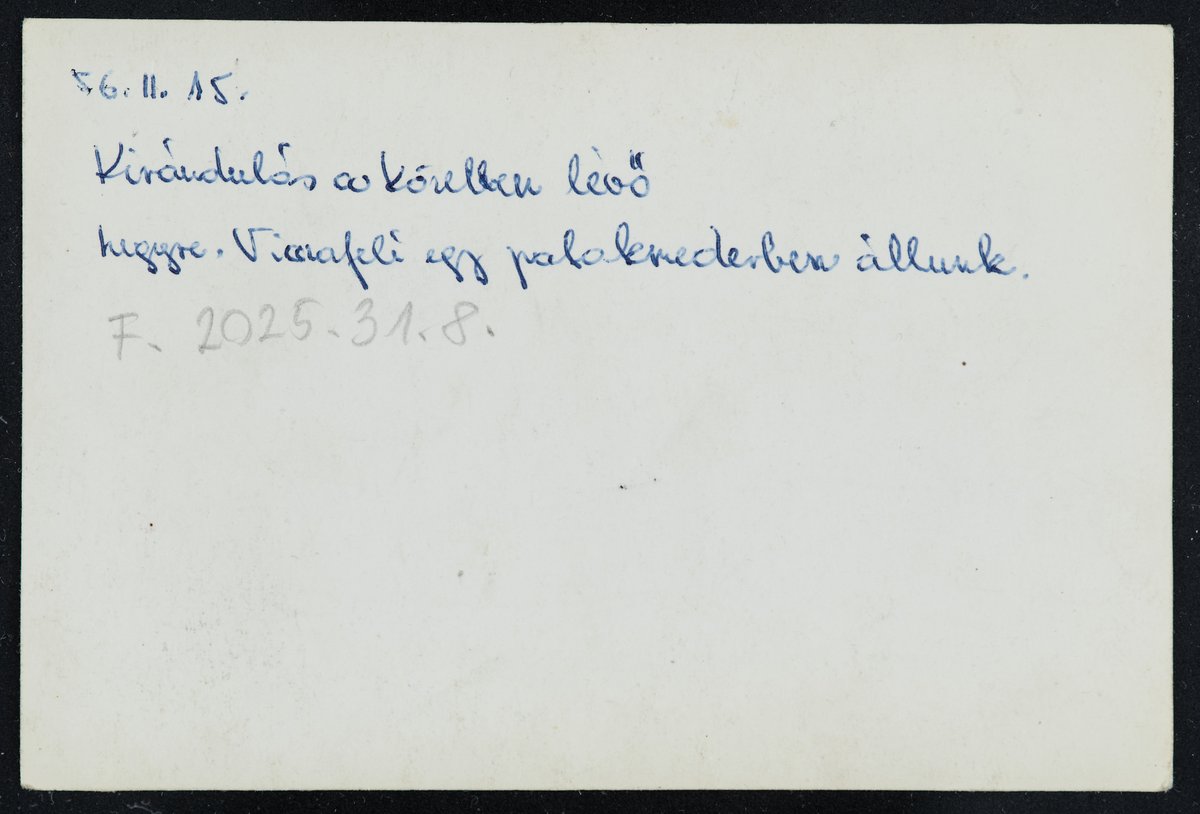 56. II. 15.
Kirándulás a közelben lévő
hegyre. Visszafelé egy patakmederben állunk.
F. 2025.31.8.